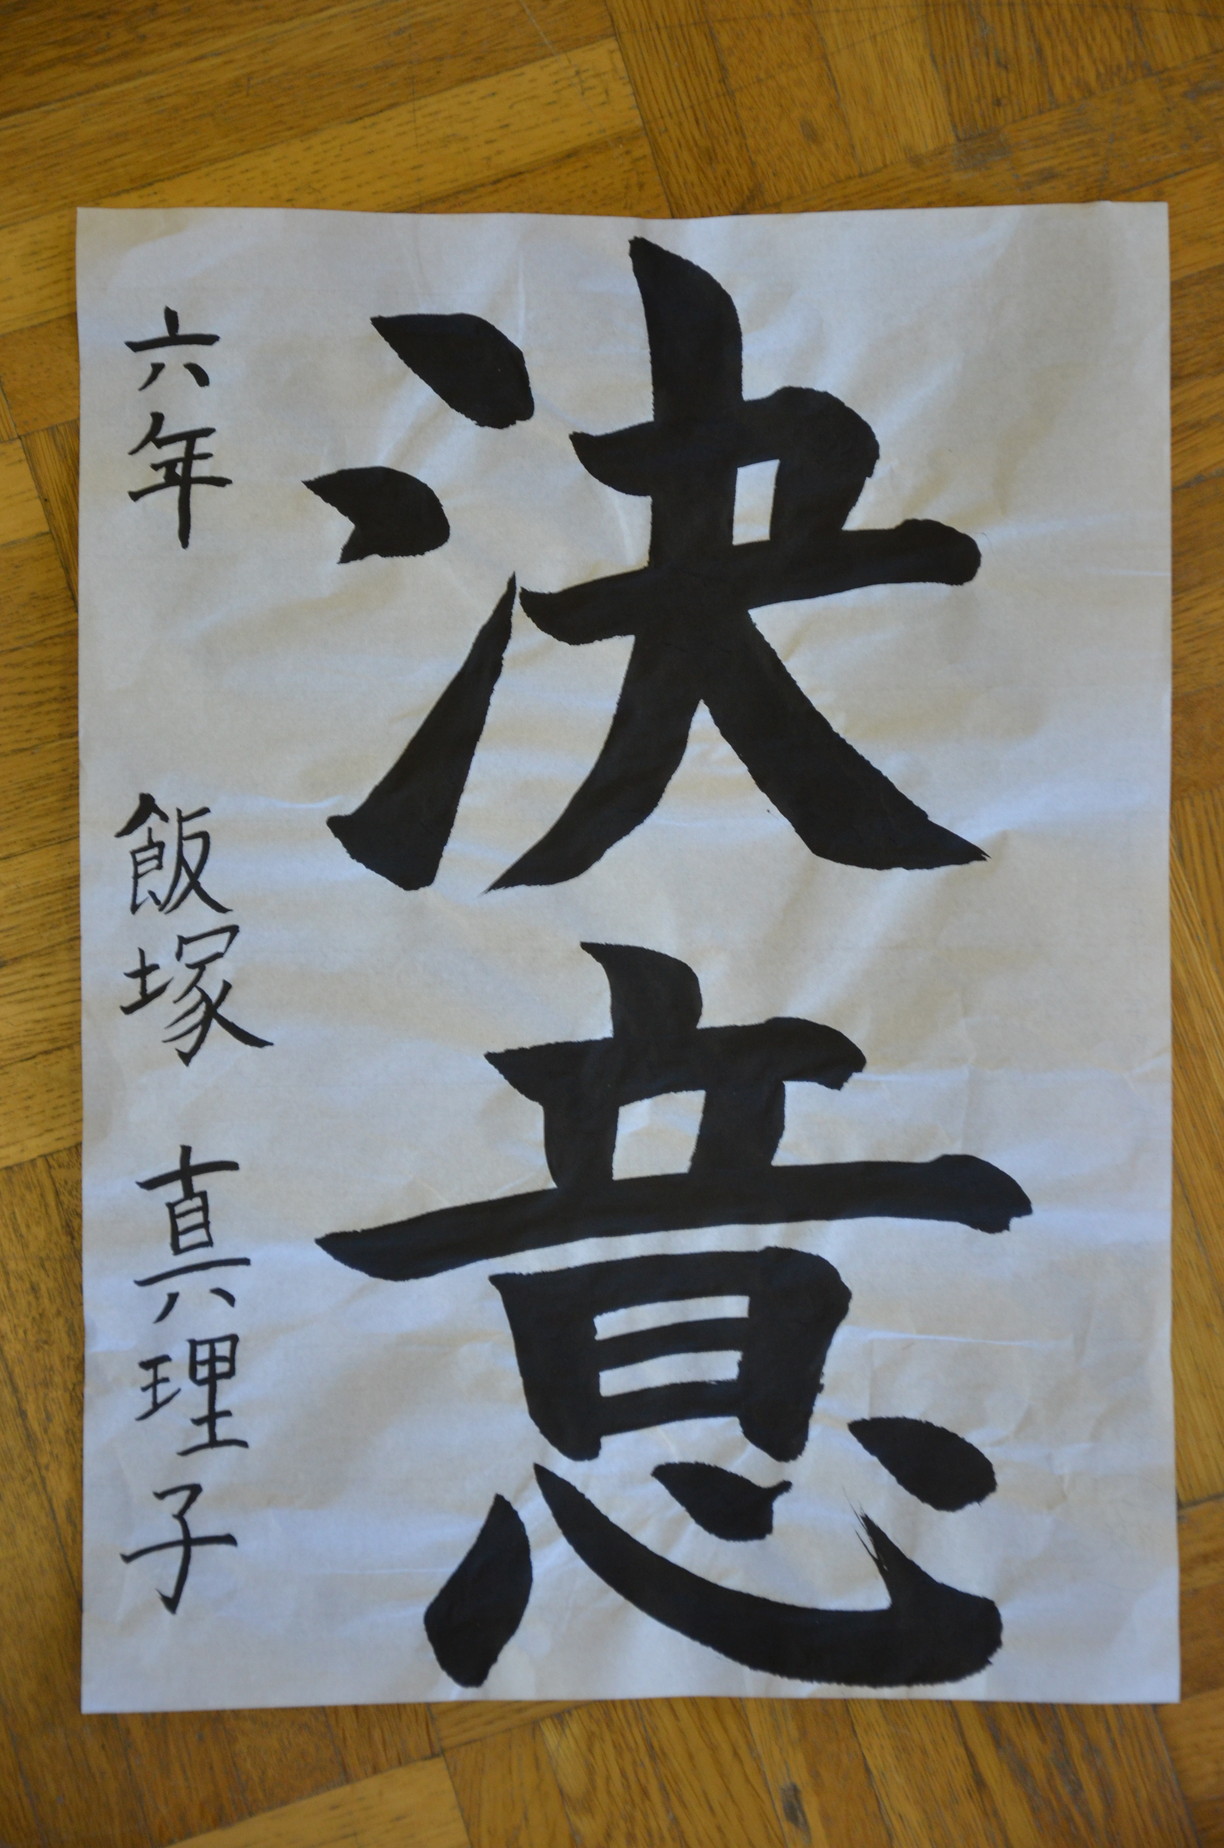 決意
六年 飯塚 真理子